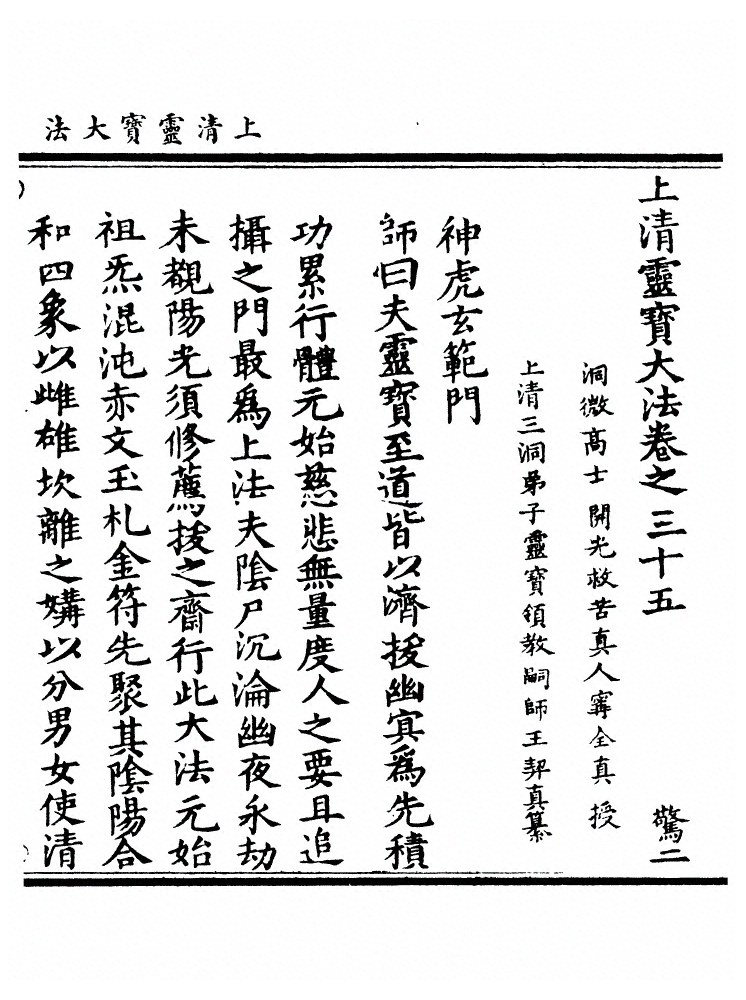 上清靈寶大法
上清靈寶大法卷之三十五　驚二
洞微高士開光救苦真人寗全真授
上清三洞弟子靈寶領教嗣師王契真纂
神虎玄範門
師曰夫靈寶至道皆以濟拔幽㝠爲先積
功累行體元始慈悲無量度人之要且追
攝之門最爲上法夫陰尸沉淪幽夜永劫
未覩陽光須修薦拔之齋行此大法元始
祖炁混沌赤文玉札金符先聚其陰陽合
和四象以雌雄坎離之媾以分男女使清